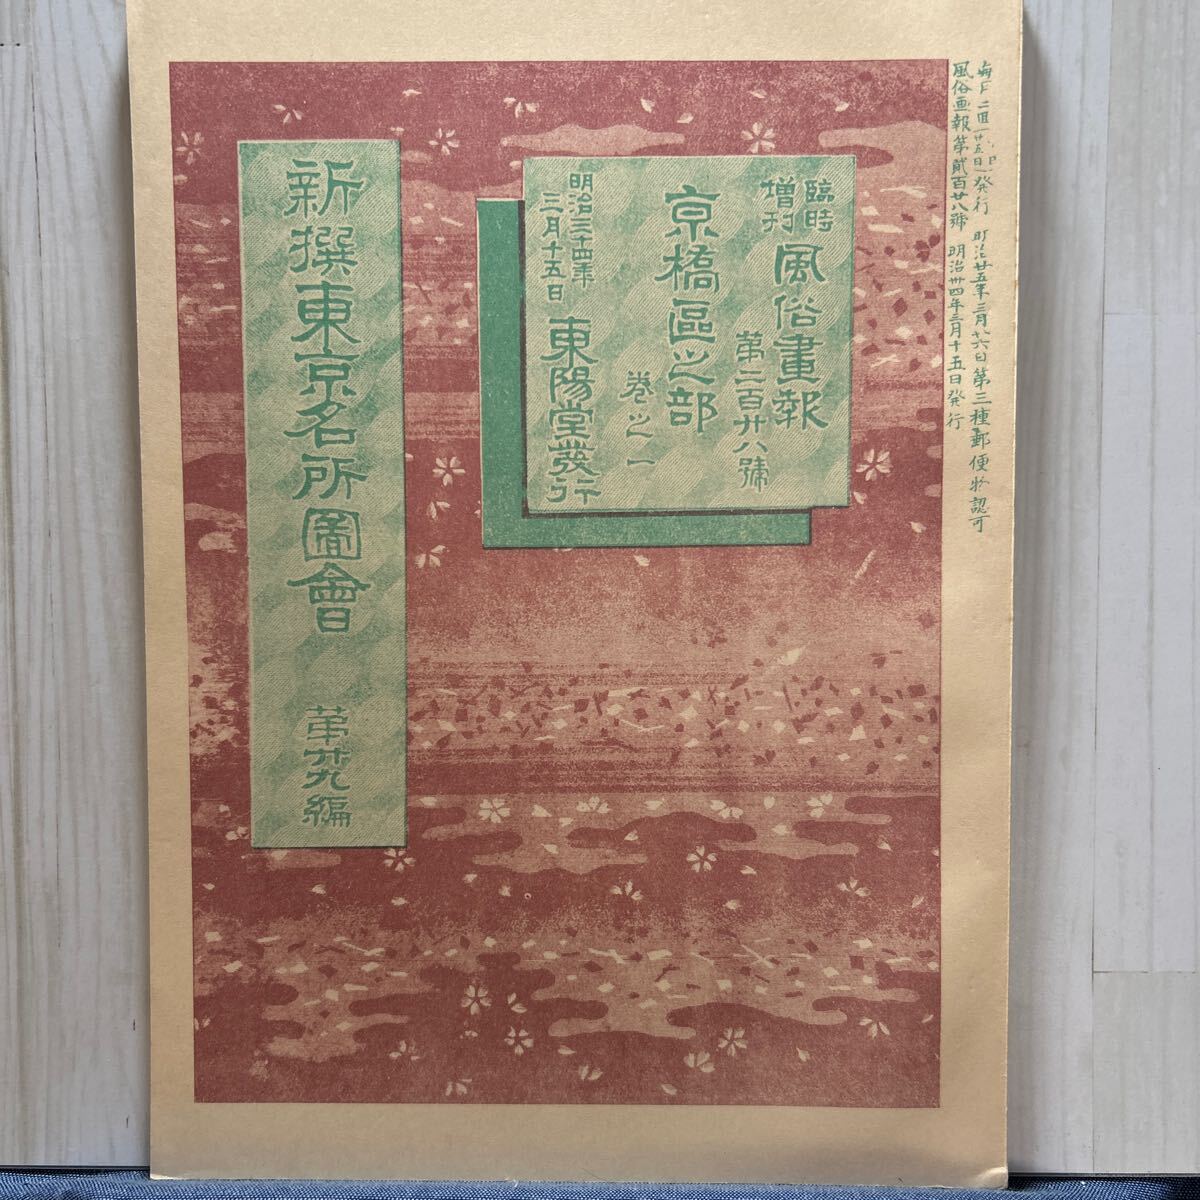 毎月二回 廿五日 発行 明治廿五年三月廿六日第三種郵便物認可
風俗画報第貳百廿八號 明治卅四年三月十五日発行
臨時
増刊
風俗畫報
第二百廿八號
京橋區之部
巻之一
明治三十四年
三月十五日
東陽堂發行
新撰東京名所圖會
第廿九編